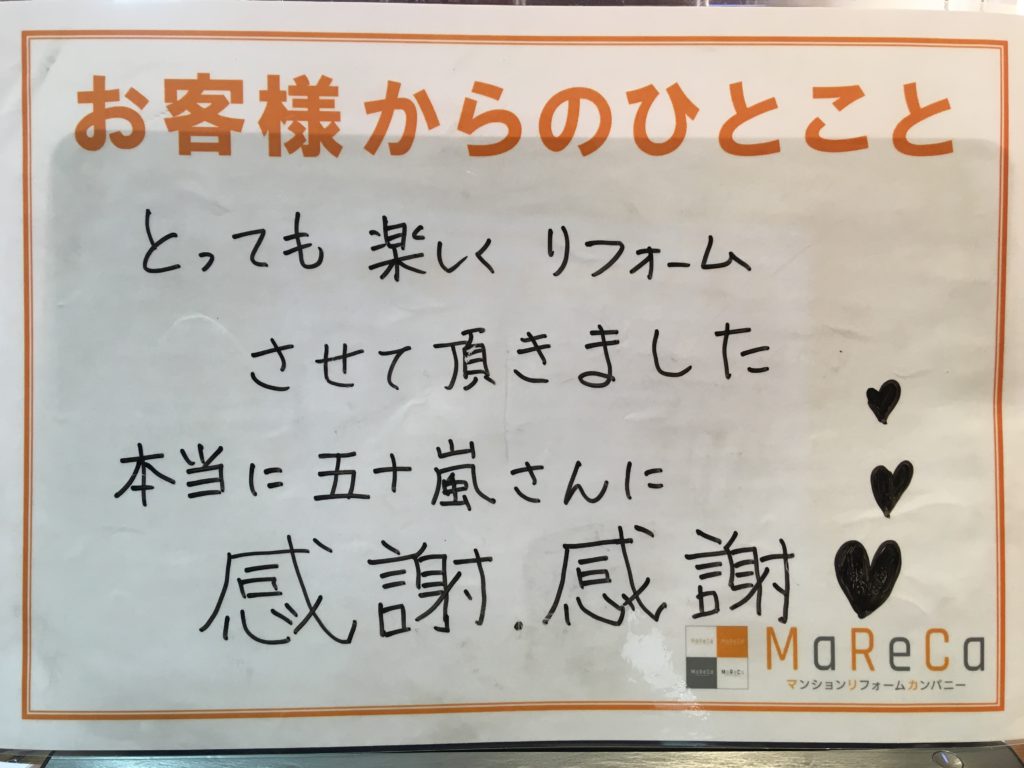 お客様からのひとこと
とっても 楽しく リフォーム
させて頂きました
本当に 五十嵐さんに
感謝.感謝
MaReCa MaReCa
MaReCa MaReCa
MaReCa
マンションリフォームカンパニー